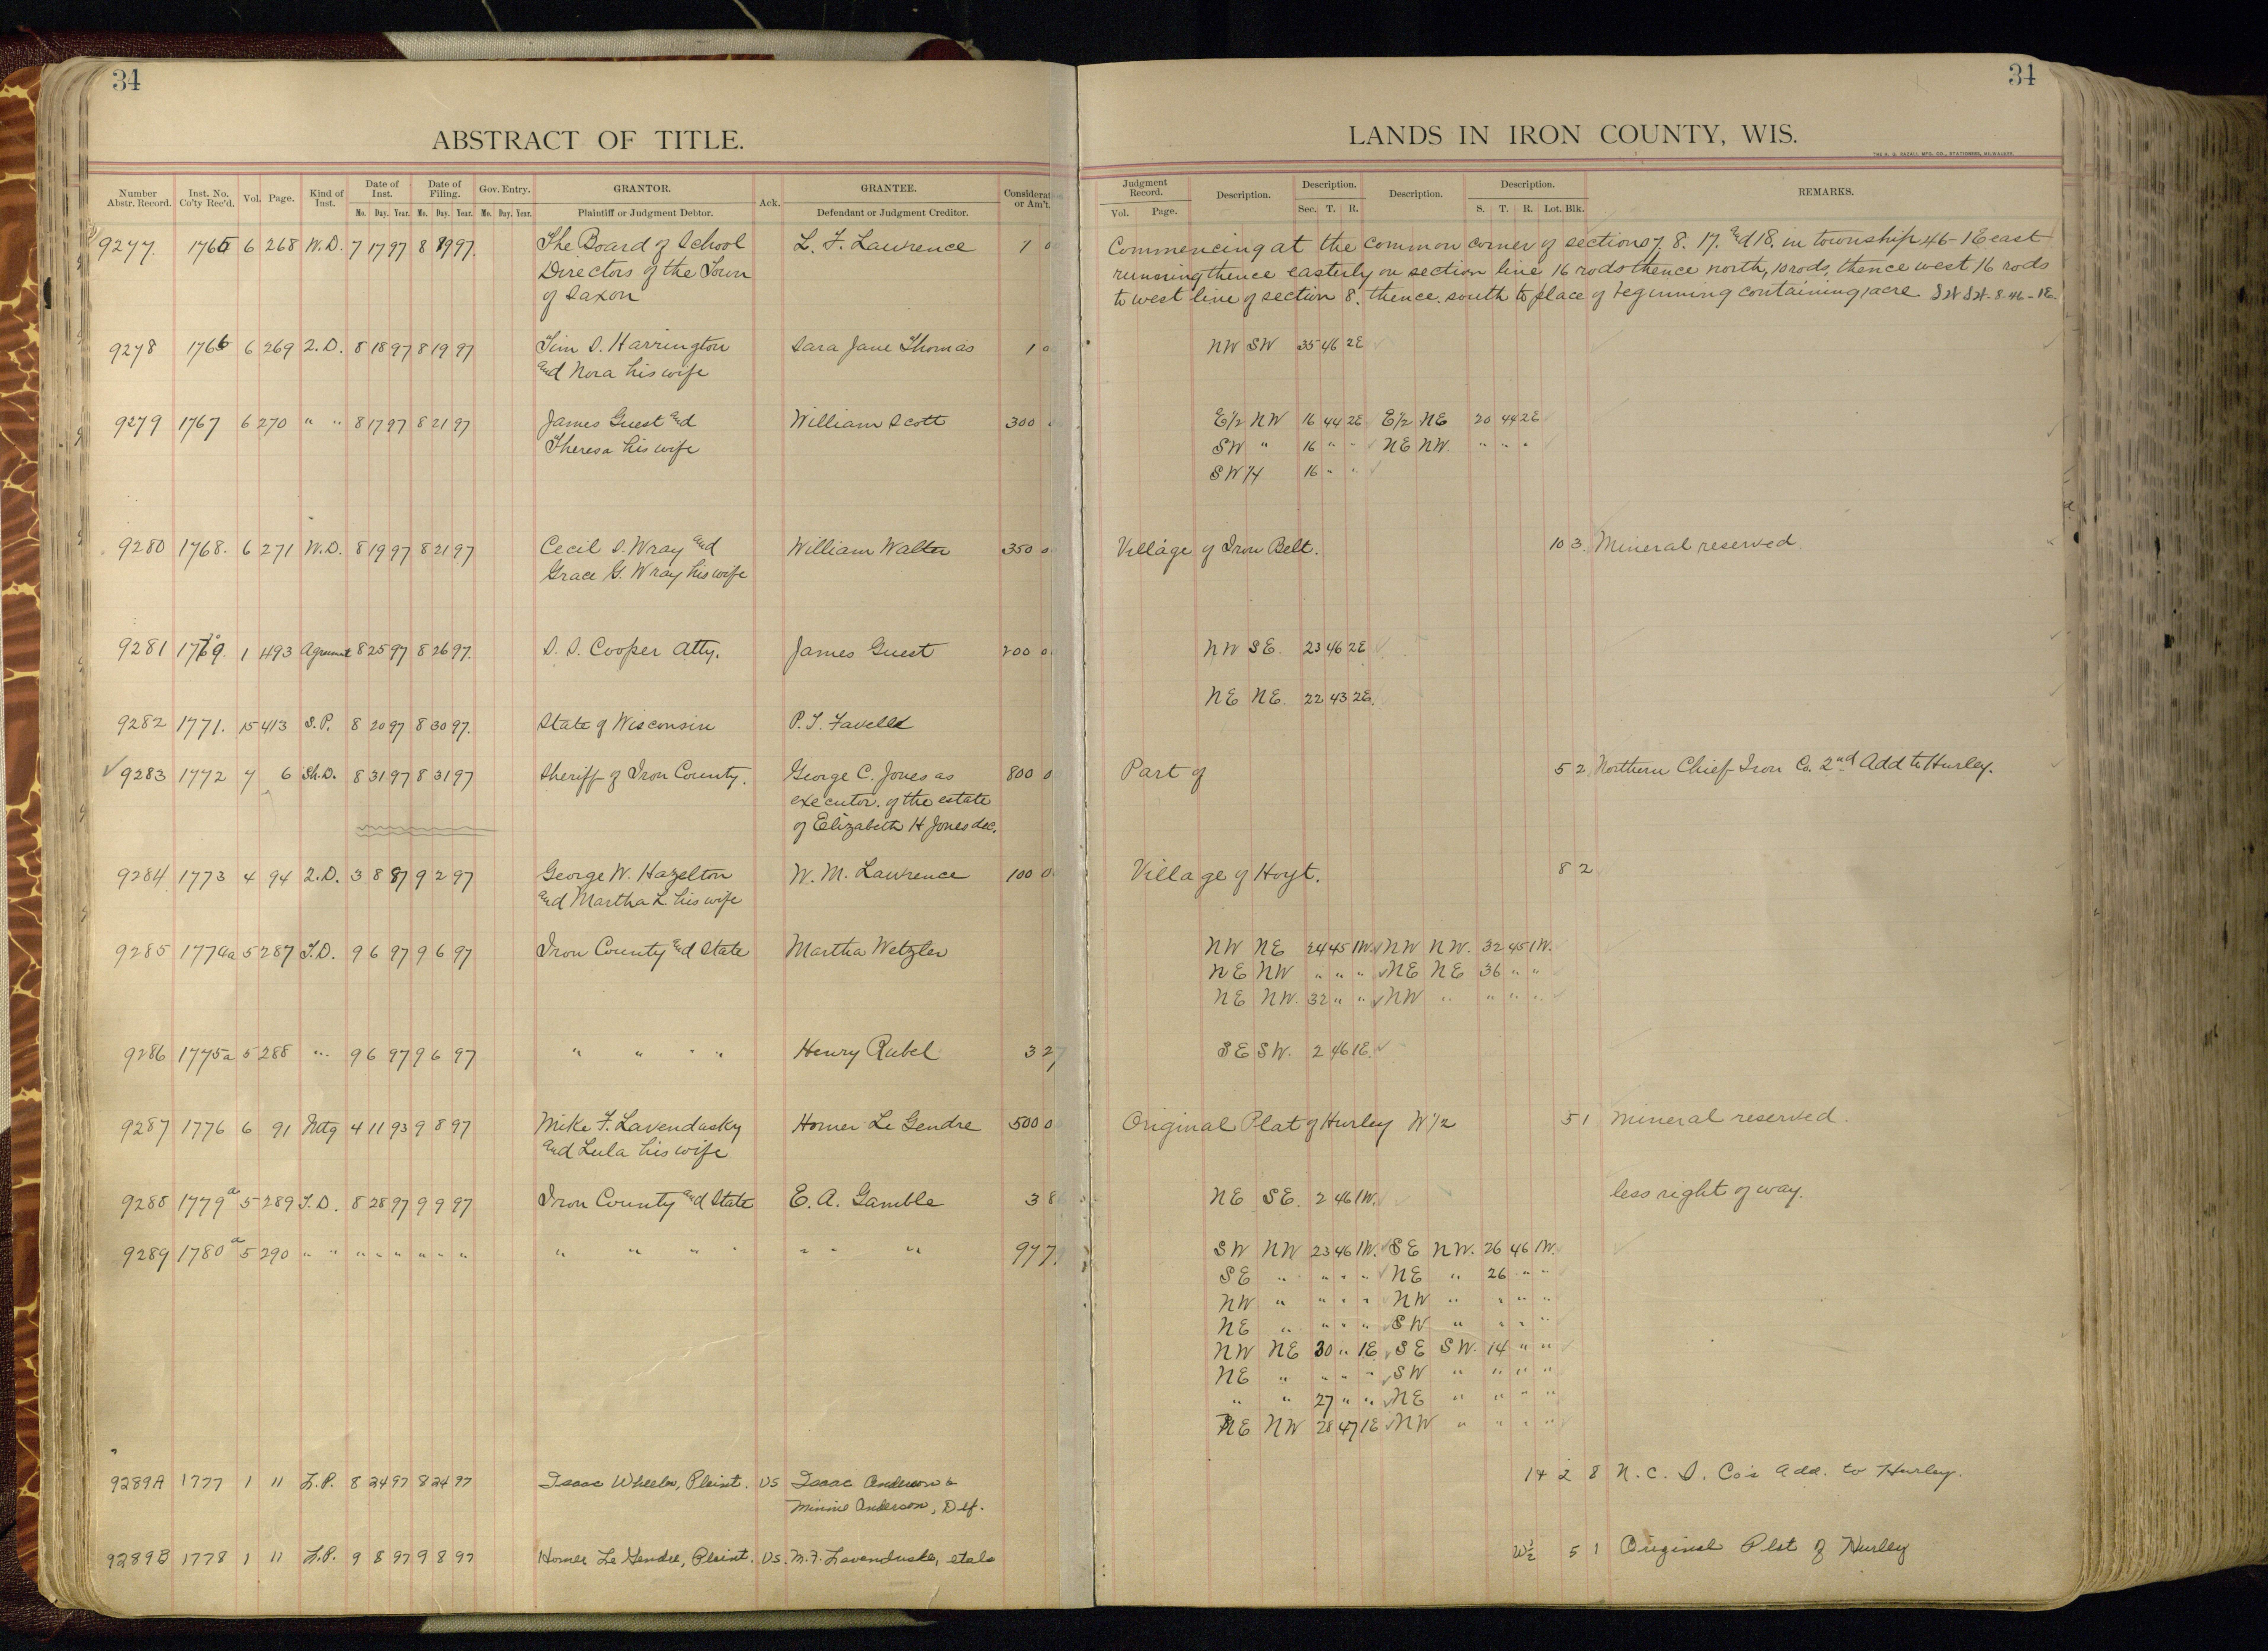 34
ABSTRACT OF TITLE.
Number Abstr. Record. Inst. No. Co'ty Rec'd. Vol. Page. Kind of Inst. Date of Inst. Date of Filing. Gov. Entry. GRANTOR. Ack. GRANTEE. Considerat or Am't.
Mo. Day. Year. Mo. Day. Year. Mo. Day. Year. Plaintiff or Judgment Debtor. Defendant or Judgment Creditor.
9277. 1765 6 268 W.D. 7 17 97 8 97. The Board of School L. F. Lawrence 1 0
Directors of the Town
of Saxon
9278 1766 6 269 2.D. 8 18 97 8 19 97 Tim S. Harrington Sara Jane Thomas 1 0
and Nora his wife
9279 1767 6 270 " " 8 17 97 8 21 97 James Guest and William Scott 300
Theresa his wife
9280 1768. 6 271 W.D. 8 19 97 8 21 97 Cecil S. Wray and William Walter 350 0
Grace G. Wray his wife
9281 1 493 Agreemt 8 25 97 8 26 97. S. S. Cooper Atty. James Guest 200 0
9282 1771. 15 413 S.P. 8 20 97 8 30 97. State of Wisconsin P. T. Favell
9283 1772 7 6 Sh.D. 8 31 97 8 31 97 Sheriff of Iron County. George C. Jones as 800 0
executor. of the estate
of Elizabeth H Jones dec.
9284 1773 4 94 2.D. 3 8 87 9 2 97 George W. Hazelton W. M. Lawrence 100 0
and Martha L. his wife
9285 1774a 5 287 T.D. 9 6 97 9 6 97 Iron County and State Martha Wetzler
9286 1775a 5 288 " " 9 6 97 9 6 97 " " " " Henry Rubel 3 27
9287 1776 6 91 Mtg 4 11 93 9 8 97 Mike F. Lavendusky Homer Le Gendre 500 0
and Lula his wife
9288 1779a 5 289 T.D. 8 28 97 9 9 97 Iron County and State E. A. Gamble 3 8
9289 1780a 5 290 " " " " " " " " " " " " " " " 97 7
9289A 1777 1 11 L.P. 8 24 97 8 24 97 Isaac Wheeler, Plaint. vs Isaac Anderson &
Minnie Anderson, Def.
9289B 1778 1 11 L.P. 9 8 97 9 8 97 Homer Le Gendre, Plaint. vs. M. F. Lavenduske, etals
34
LANDS IN IRON COUNTY, WIS.
Judgment Record. Description. Description. Description. Description. REMARKS.
Vol. Page. Sec. T. R. S. T. R. Lot. Blk.
Commencing at the common corner of sections 7. 8. 17. and 18. in township 46-1 East
running thence easterly on section line 16 rods thence north, 10 rods, thence west 16 rods
to west line of section 8. thence south to place of beginning containing 1 acre SW SW-8-46-1E.
NW SW 35 46 2E
E½ NW 16 44 2E E½ NE 20 44 2E
SW " 16 " " NE NW. " " "
SW ¼ 16 " "
Village of Iron Belt. 10 3. Mineral reserved.
NW SE. 23 46 2E
NE NE. 22 43 2E.
Part of 5 2 Northern Chief Iron Co. 2nd Add to Hurley.
Village of Hoyt. 8 2
NW NE 24 45 1W. NW NW. 32 45 1W.
NE NW " " " NE NE 36 " "
NE NW. 32 " " NW " " " "
SE SW. 2 46 1E.
Original Plat of Hurley W½ 5 1 Mineral reserved.
NE SE. 2 46 1W. less right of way.
SW NW 23 46 1W. SE NW. 26 46 1W.
SE " " " " NE " 26 " "
NW " " " " NW " " " "
NE " " " " SW " " " "
NW NE 30 " 1E SE SW. 14 " "
NE " " " " SW " " " "
" " 27 " " NE " " " "
NE NW 28 47 1E NW " " " "
14 2 8 N. C. I. Co's Add. to Hurley.
W½ 5 1 Original Plat of Hurley